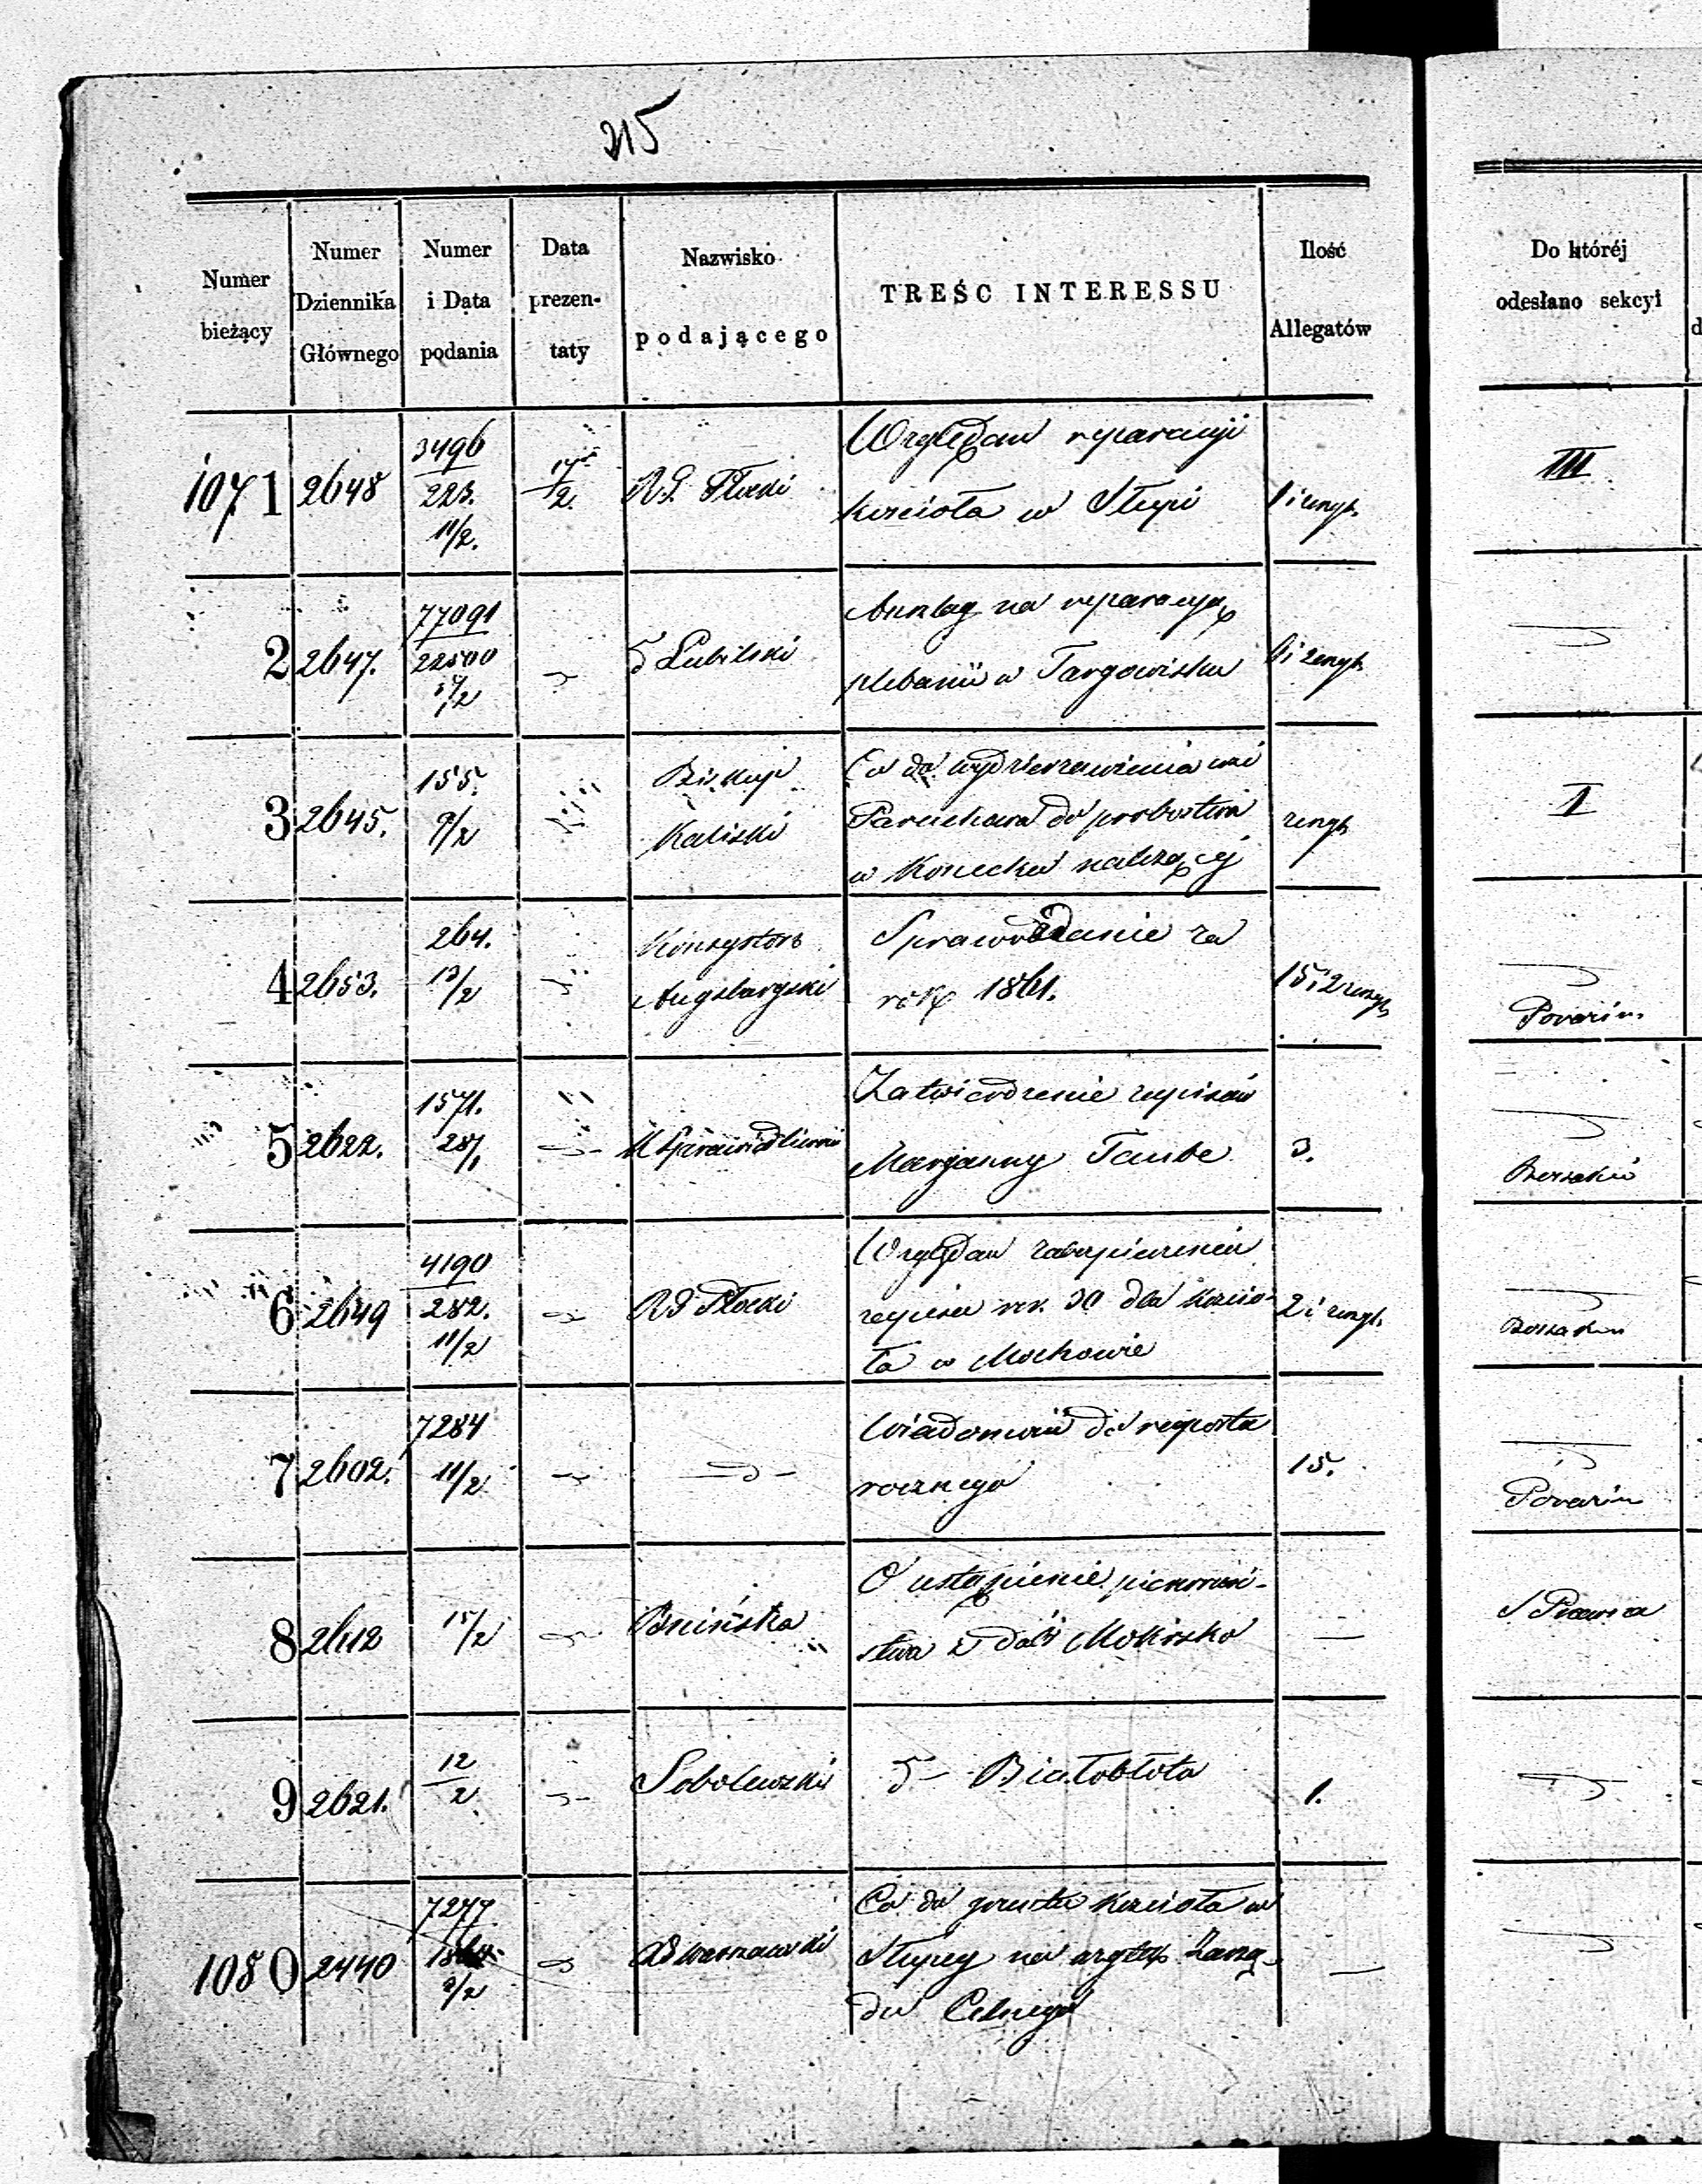 215
Numer bieżący
Numer Dziennika Głównego
Numer i Data podania
Data prezen- taty
Nazwisko podającego
TREŚC INTERESSU
Ilość Allegatów
Do któréj odesłano sekcyi
1071 2648 3496 223. 11/2. 17/2. R.G. Płocki
Względem reparacyi
kościoła w Słupi
III
2 2647. 77091 22500 Lubelski
Anszlag na reparacyą
plebanii w Targowisku
3 2645. 155. 9/2 Biskup
Kaliski
Co do wydzierżawienia wsi
do probostwa
w Konecku należącej
II
4 2653. 264. 13/2 Konsystorz
Augsburgski
Sprawozdanie za
rok 1861.
5 2622. 1571. 28/1 K Sprawiedliwości
Zatwierdzenie zapisów
Maryanny Taube
3.
6 2649 4190 282. 11/2 RG Płocki
Względem zabezpieczenia
zapisu rsr. 30 dla kościo-
ła w Mochowie
7 2602. 7284 11/2
Wiadomości do raportu
rocznego
15.
8 2612 15/2 Bnińska
O ustąpienie pierwszeń-
stwa z dóbr Mokrsko
—
9 2621. 12/2 Sobolewski
Białobłota
1.
1080 2440 7277 9/2
Co do gruntu kościoła w
Słupcy na Zarzą-
du Celnego
—